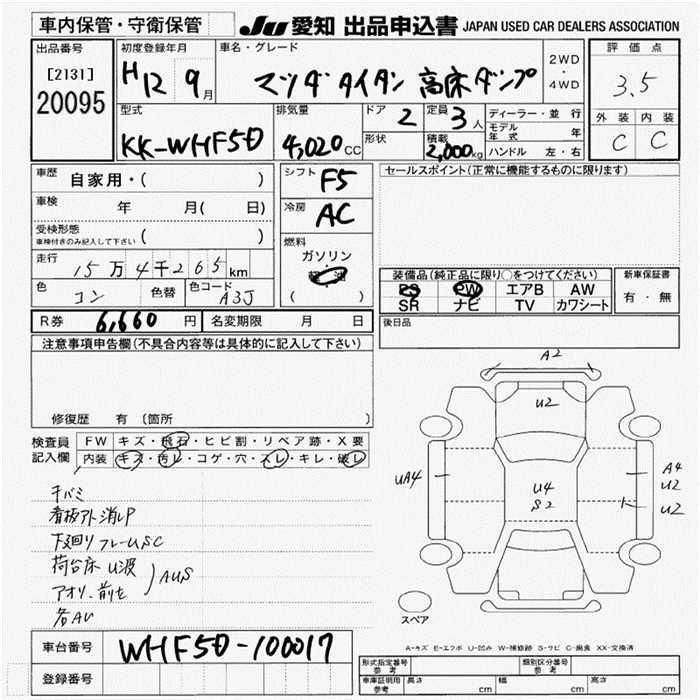 車内保管・守衛保管 JU 愛知 出品申込書 JAPAN USED CAR DEALERS ASSOCIATION
出品番号 初度登録年月 車名・グレード 評価点
[2131] H12 9月 マツダ タイタン 高床ダンプ 2WD・4WD 3.5
20095
型式 排気量 ドア 2 定員 3人 ディーラー・並行 外装 内装
KK-WHF5D 4,020CC 形状 積載 2,000kg モデル年式 年 C C
ハンドル 左・右
車歴 自家用・( ) シフト F5 セールスポイント(正常に機能するものに限ります)
車検 年 月( 日) 冷房 AC
受検形態 車検付きのみ記入して下さい ( )
燃料 ガソリン
走行 15万4千265km 軽油
( )
装備品(純正品に限り○をつけてください) 新車保証書
色 コン 色替 色コード A3J PS PW エアB AW 有・無
SR ナビ TV カワシート
R券 6,660円 名変期限 月 日 後日品
注意事項申告欄(不具合内容等は具体的に記入して下さい)
修復歴 有 (箇所 )
検査員記入欄 FW キズ・飛石・ヒビ割・リペア跡・X要
内装 キズ・汚レ・コゲ・穴・スレ・キレ・破レ
A2
U2
UA4
U4
S2
A4
U2
U2
スペア
看板アト消しP
下廻りフレームSC
荷台床U波
アオリ、前セ
AUS
各AU
A-キズ E-エクボ U-凹み W-補修跡 S-サビ C-腐食 XX-交換済
車台番号 WHF5D-100017
登録番号
形式指定番号 参考 類別区分番号 参考
車庫証明用 参考 長さ cm 幅 cm 高さ cm